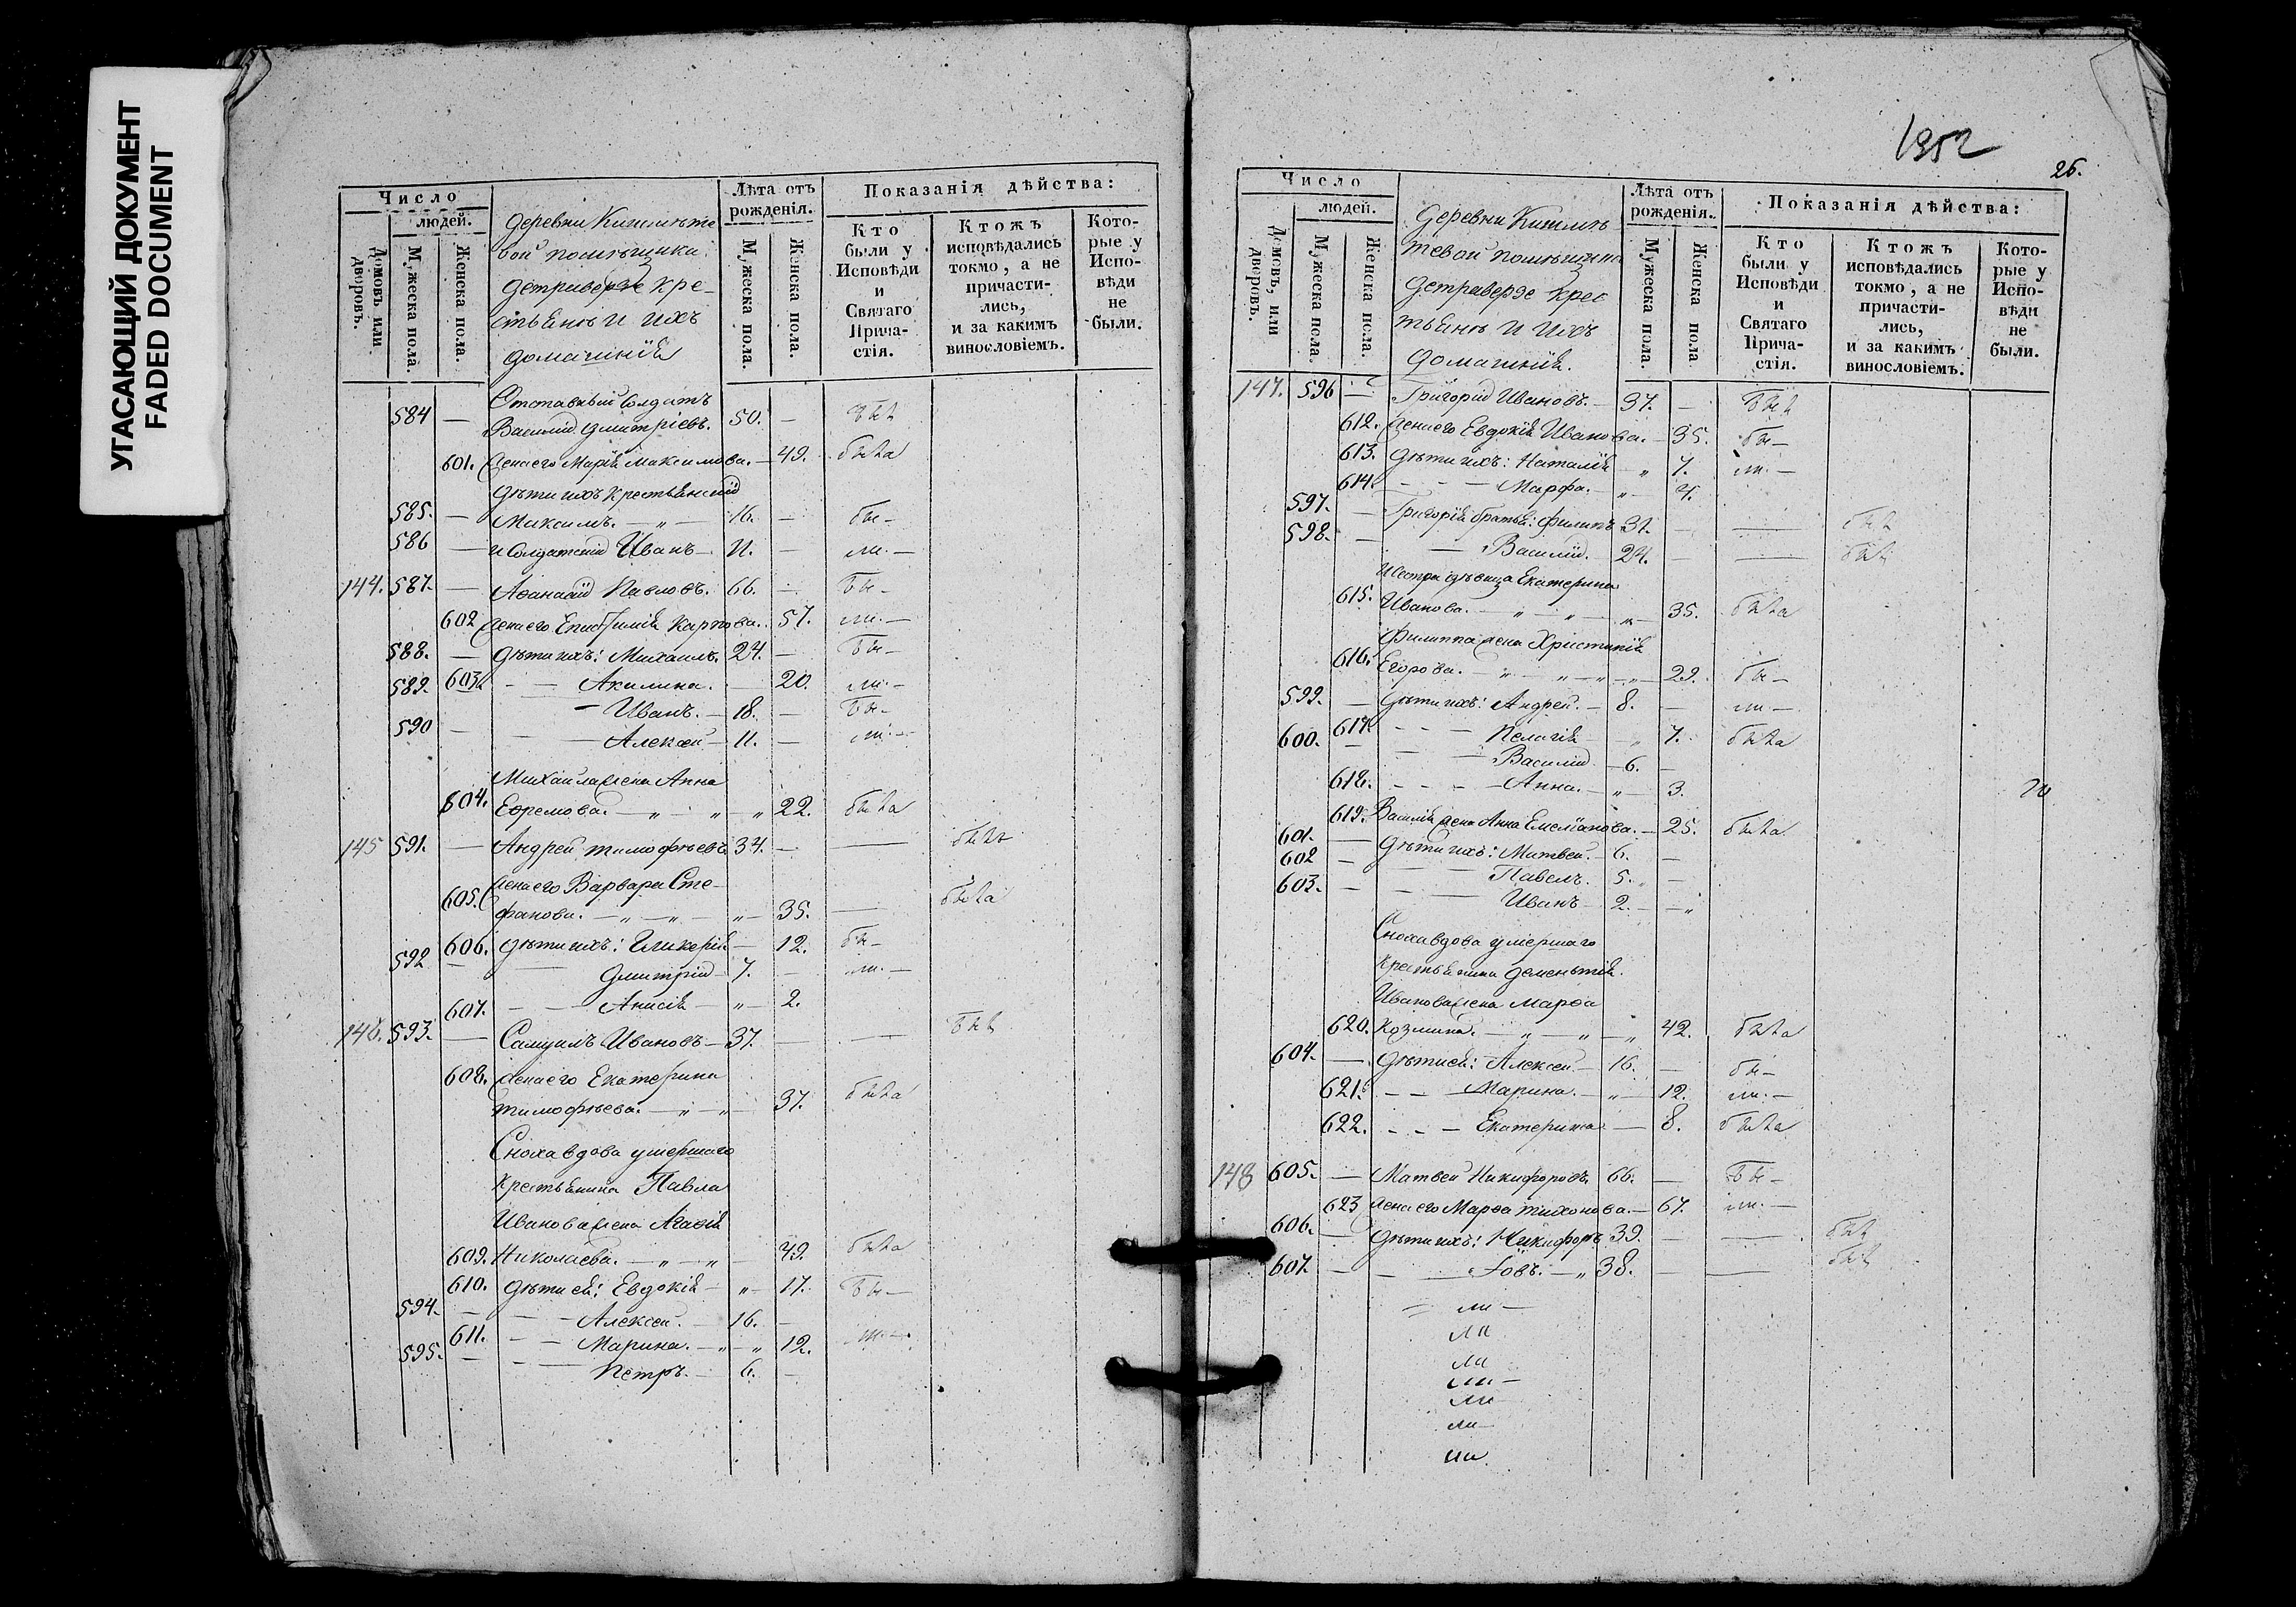 УГАСАЮЩИЙ ДОКУМЕНТ
FADED DOCUMENT
Число
людей.
Домовъ или дворовъ.
Мужеска пола.
Женска пола.
Лѣта отъ рожденія.
Мужеска пола.
Женска пола.
Показанія дѣйства:
Кто были у Исповѣди и Святаго Прича-стія.
Ктожъ исповѣдались токмо, а не причасти-лись, и за какимъ винословіемъ.
Кото-рые у Испо-вѣди не были.
вой помѣщика
кре-
стьянѣ и ихъ
домашнія
Отставный Солдатъ
584 — Василій Дмитріевъ. 50. — былъ
601. Жена его Марія Максимова. — 49. была
дѣти ихъ крестьянскій
585. — Максимъ. — „ — 16. — бы —
586 — и Солдатскій Иванъ — 11. — ли. —
144. 587. — Аѳанасій Павловъ. 66. — бы —
602 Жена его Епистимія Карпова. 57. ли. —
588. — дѣти ихъ: Михаилъ. 24. — бы —
589. 603. — — Акилина. — 20. ли —
— Иванъ. — 18. — бы —
590 — — — Алексей — 11. — ли. —
Михаила жена Анна
604. Ефремова. — „ — „ — „ 22. была
145 591. — Андрей Тимофѣевъ 34. — — былъ
605. Жена его Варвара Сте-
фанова. — „ — „ — „ — 35. — была
606. дѣти ихъ: Гликерія — 12. бы —
592 — — Дмитрій — 7. — ли. —
607. — — Анисія — „ — 2.
146. 593. — Самуилъ Ивановъ — 37. — — былъ
608. Жена его Екатерина
Тимофѣева. — „ — „ — 37. была
Сноха вдова умершаго
крестьянина Павла
Иванова жена Агафія
609. Николаева. — „ — „ — 49. была
610. дѣти ей: Евдокія — „ — 17. бы —
594. — — — Алексей. — 16. —
611. — — Марина. — „ — „ 12. ли. —
595. — — — Петръ. — 6. —
1952
26.
Число
людей.
Домовъ, или дворовъ.
Мужеска пола.
Женска пола.
Лѣта отъ рожденія.
Мужеска пола.
Женска пола
Показанія дѣйства:
Кто были у Исповѣди и Святаго Прича-стія.
Ктожъ исповѣдались токмо, а не причасти-лись, и за какимъ винословіемъ.
Кото-рые у Испо-вѣди не были.
крес
тьянъ и ихъ
домашнія.
147. 596 — Григорій Ивановъ. — 37. — былъ
612. Жена его Евдокія Иванова. — 35. бы —
613. дѣти ихъ: Наталія „ 7. ли. —
614. — — — Марфа. — „ — 4.
597. — Григорія братья: Филипъ 31. — — былъ
598. — — Василій. — 24. — — былъ
и сестра дѣвица Екатерина
615. Иванова. — „ — „ — „ — 35. была
Филиппа жена Христинія
616. Егорова. — „ — „ — „ — 29. бы —
599. — дѣти ихъ: Андрей. — 8. — ли —
617. — — — Пелагія — „ 7. была
600. — — — Василій — 6. —
618. — — — Анна. — „ — 3.
619. Василія жена Анна Емеліанова. — 25. была
601. — дѣти ихъ: Матвей. — 6. —
602 — — — Павелъ. 5. —
603. — — Иванъ — 2. — „
Сноха вдова умершаго
крестьянина Дементія
Иванова жена Марѳа
620. Козмина. — „ — „ — „ 42. была
604. — дѣти ей: Алексей — 16. — бы —
621. — — Марина. — „ — 12. ли. —
622. — — — Екатерина — 8. была
148 605. — Матвей Никифоровъ. 66. — бы —
623 Жена его Марѳа Тихонова. — 67. ли. —
606. — дѣти ихъ: Никифоръ 39. — — былъ
607. — — — Іовъ. — „ 38. — — былъ